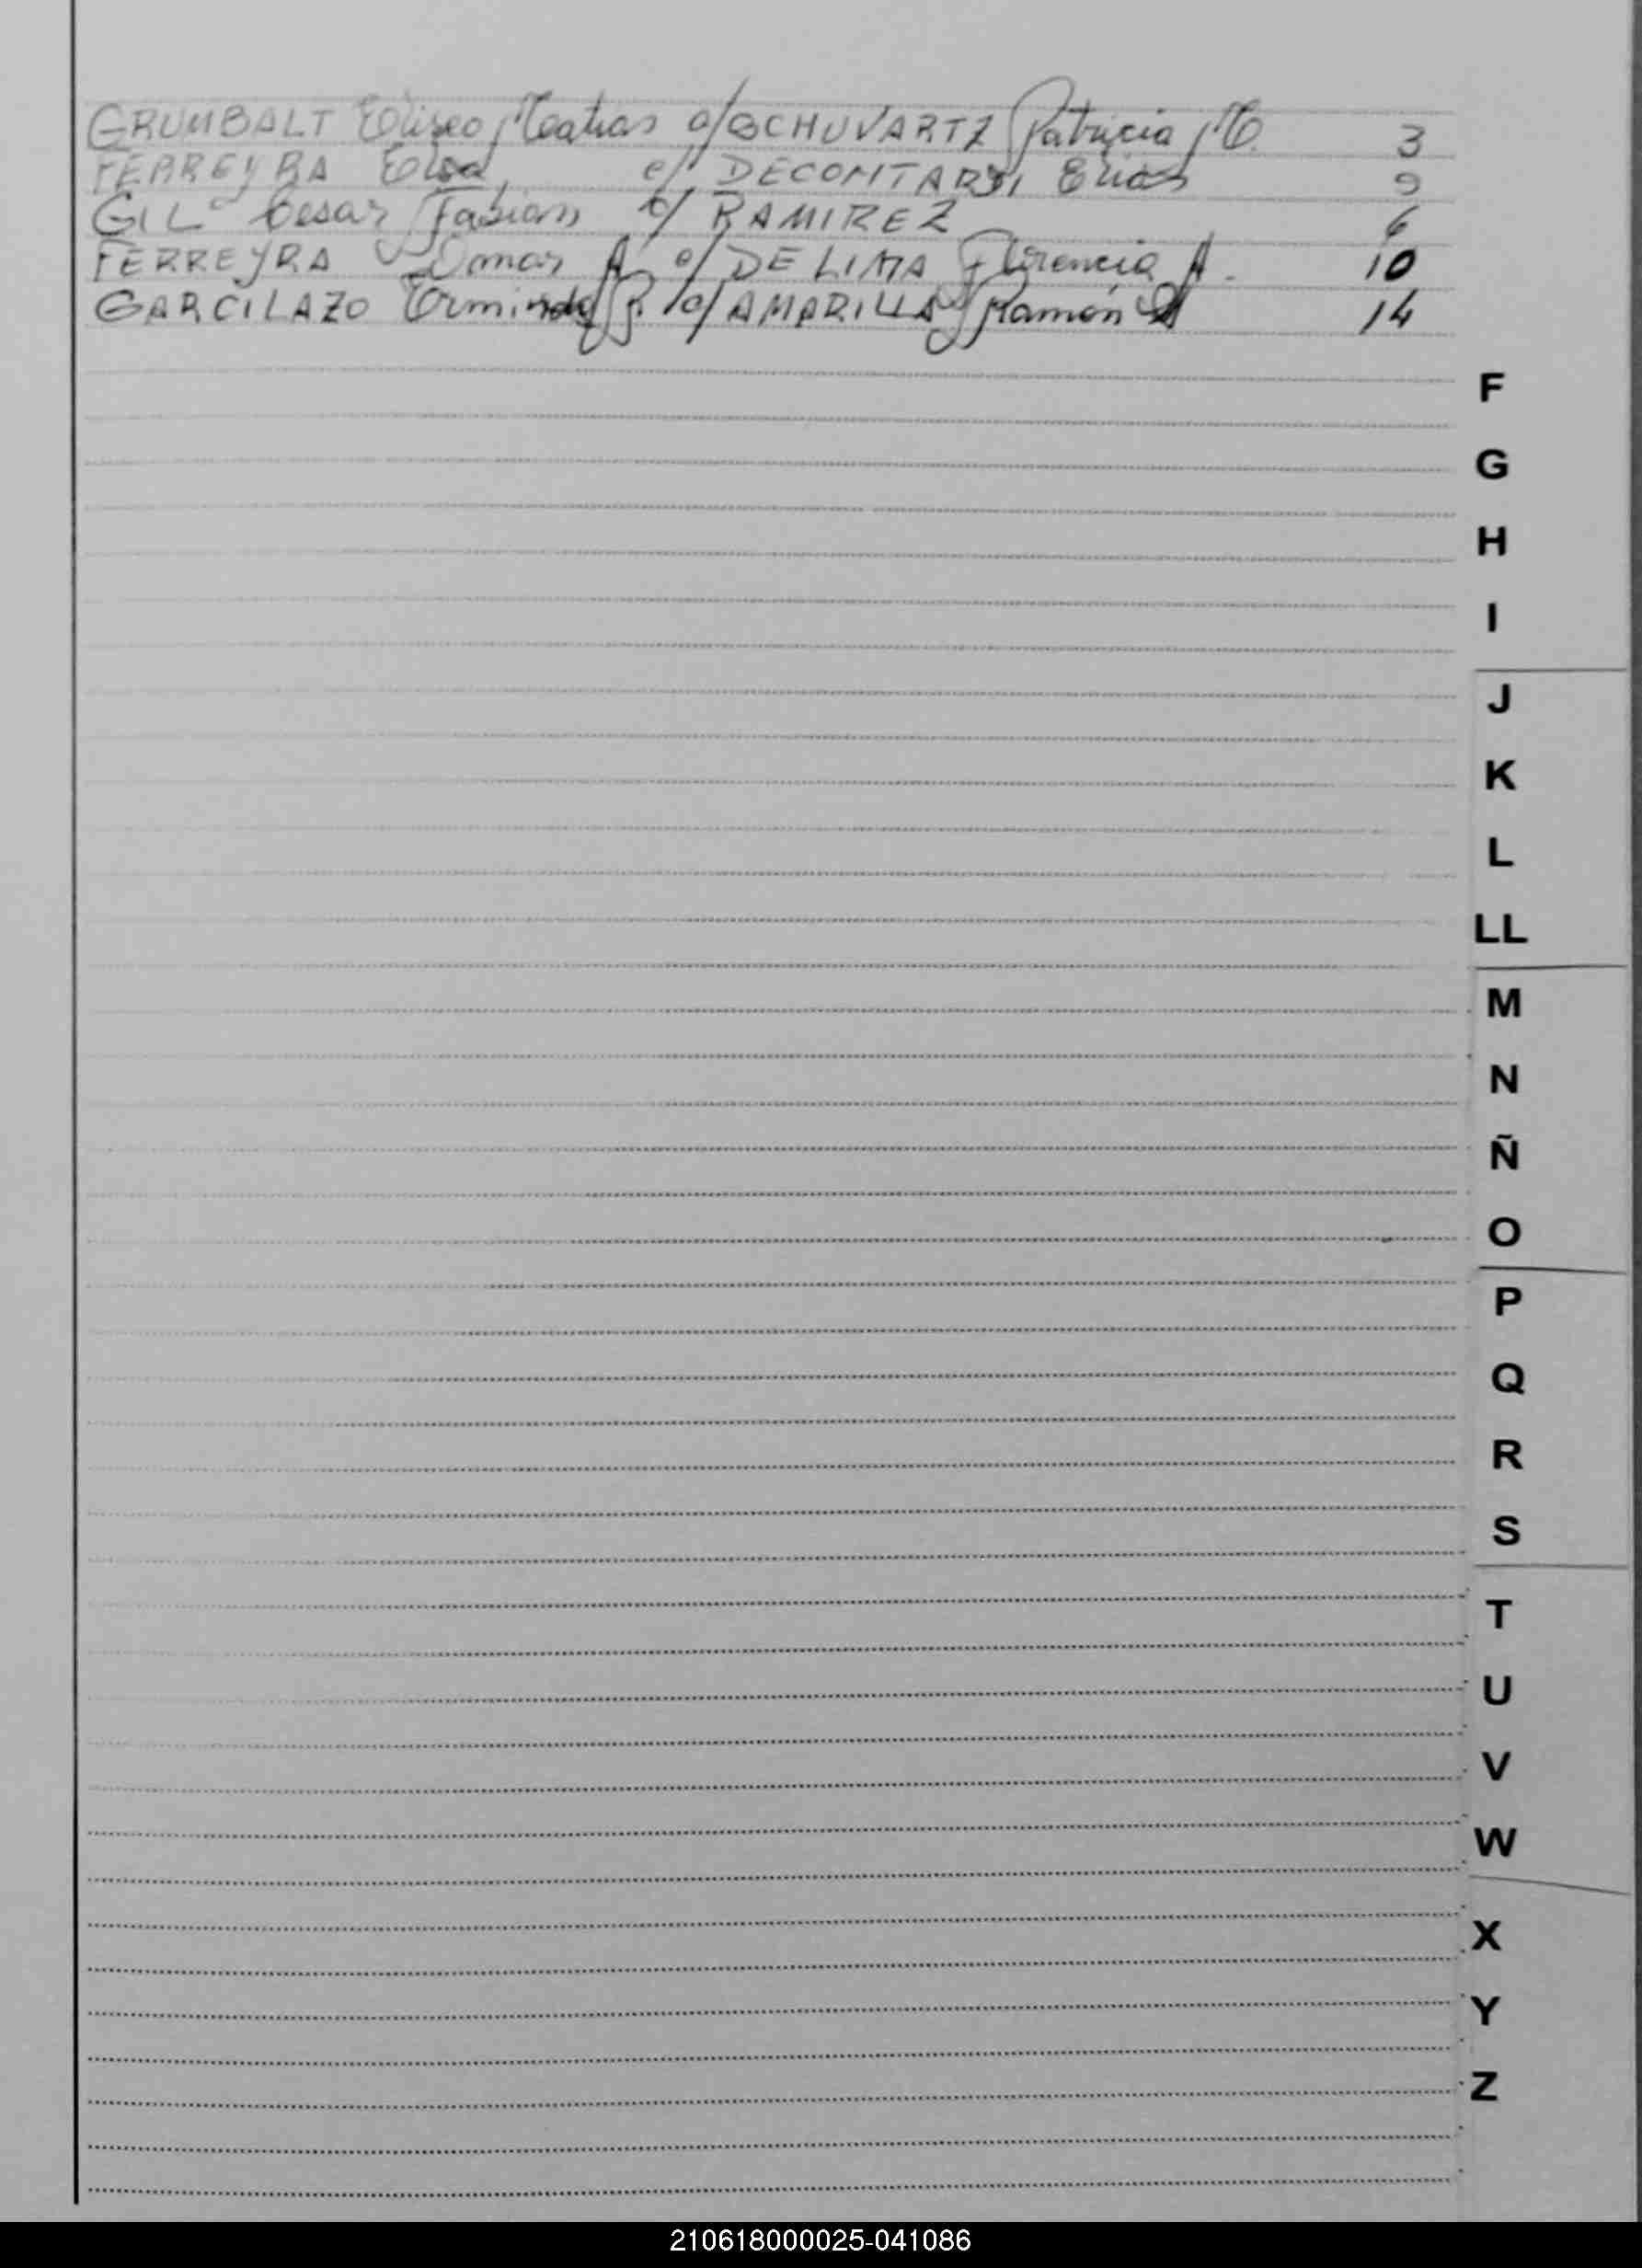 GRUMBALT Eliseo Matias c/ SCHUVARTZ Patricia M. 3
FERREYRA Elsa, c/ DECONTARDI, Elias 9
GIL Cesar Fabian c/ RAMIREZ 6
FERREYRA Omar A. c/ DE LIMA Florencia A. 10
GARCILAZO Erminda c/ AMARILLA Ramón 14
F
G
H
I
J
K
L
LL
M
N
Ñ
O
P
Q
R
S
T
U
V
W
X
Y
Z
210618000025-041086